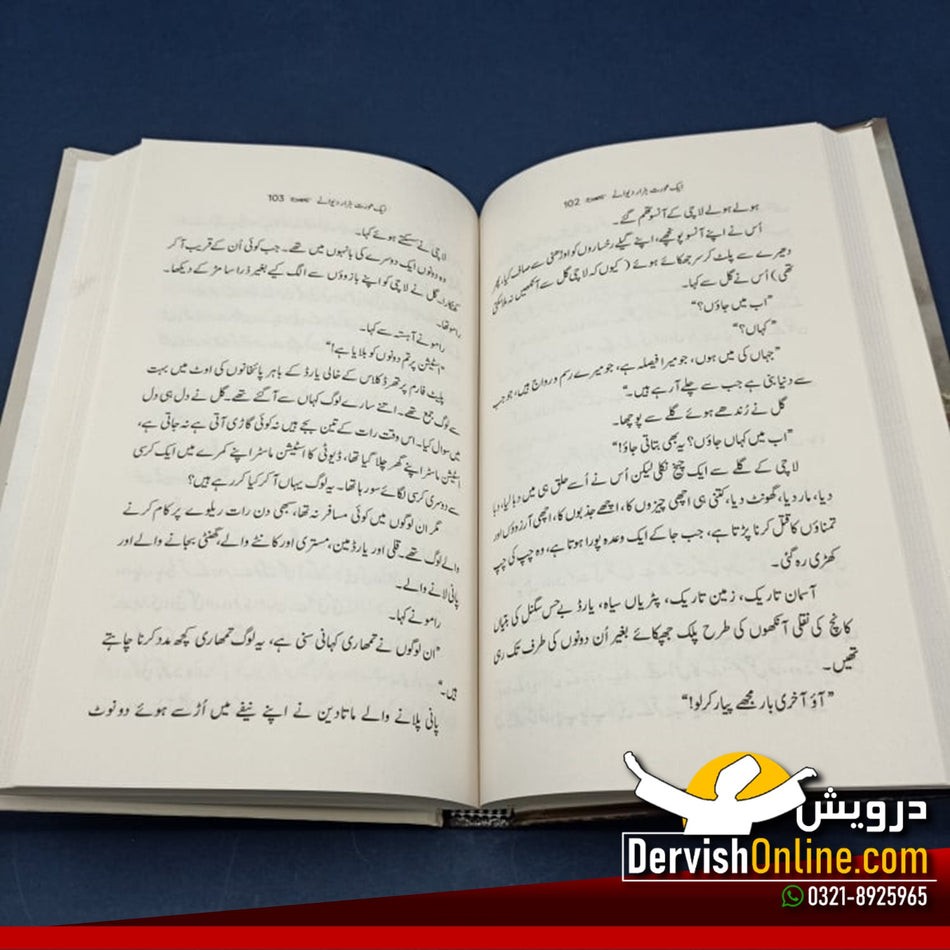 ایک عورت ہزار دیوانے 102
ہولے ہولے لاچی کے آنسو تھم گئے۔
اُس نے اپنے آنسو پونچھے، اپنے گیلے رخساروں کو اوڑھنی سے صاف کیا، پھر
دھیرے سے پلٹ کر سر جھکائے ہوئے (کیوں کہ لاچی گل سے آنکھیں نہ ملا سکتی
تھی) اُس نے گل سے کہا۔
”اب میں جاؤں؟“
”کہاں؟“
”جہاں کی میں ہوں، جو میرا فیصلہ ہے، جو میرے رسم و رواج ہیں، جو جب
سے دنیا بنی ہے جب سے چلے آ رہے ہیں۔“
گل نے رُندھے ہوئے گلے سے پوچھا۔
”اب میں کہاں جاؤں؟ یہ بھی بتاتی جاؤ!“
لاچی کے گلے سے ایک چیخ نکلی لیکن اُس نے اُسے حلق ہی میں دبا لیا، دبا
دیا، مار دیا، گھونٹ دیا، کتنی ہی اچھی چیزوں کا، اچھے جذبوں کا، اچھی آرزوؤں اور
تمناؤں کا قتل کرنا پڑتا ہے، جب جا کے ایک وعدہ پورا ہوتا ہے، وہ چپ کی چپ
کھڑی رہ گئی۔
آسمان تاریک، زمین تاریک، پٹریاں سیاہ، یارڈ بے حس سگنل کی بتیاں
کانچ کی نقلی آنکھوں کی طرح پلک جھپکائے بغیر اُن دونوں کی طرف تک رہی
تھیں۔
”آؤ آخری بار مجھے پیار کر لو!“
ایک عورت ہزار دیوانے 103
لاچی نے سسکتے ہوئے کہا۔
وہ دونوں ایک دوسرے کی بانہوں میں تھے۔ جب کوئی اُن کے قریب آ کر
کھنکارا۔ گل نے لاچی کو اپنے بازوؤں سے الگ کیے بغیر ذرا سا مڑ کے دیکھا۔
رامو تھا۔
رامو نے آہستہ سے کہا۔
”اسٹیشن پر تم دونوں کو بلایا ہے!“
پلیٹ فارم پر تھرڈ کلاس کے خالی یارڈ کے باہر پائخانوں کی اوٹ میں بہت
سے لوگ جمع تھے۔ اتنے سارے لوگ کہاں سے آ گئے تھے۔ گل نے دل ہی دل
میں سوال کیا۔ اس وقت رات کے تین بجے ہیں نہ کوئی گاڑی آتی ہے نہ جاتی ہے،
اسٹیشن ماسٹر اپنے گھر چلا گیا تھا، ڈیوٹی کا اسٹیشن ماسٹر اپنے کمرے میں ایک کرسی
سے دوسری کرسی لگائے سو رہا تھا۔ یہ لوگ یہاں آ کر کیا کر رہے ہیں؟
مگر ان لوگوں میں کوئی مسافر نہ تھا، سبھی دن رات ریلوے پر کام کرنے
والے لوگ تھے۔ قلی اور یارڈ مین، مستری اور کانٹے والے، گھنٹی بجانے والے اور
پانی لانے والے۔
رامو نے کہا۔
”ان لوگوں نے تمھاری کہانی سنی ہے، یہ لوگ تمھاری کچھ مدد کرنا چاہتے
ہیں۔“
پانی پلانے والے ماتادین نے اپنے نیفے میں اُڑسے ہوئے دو نوٹ
درویش
DervishOnline.com
0321-8925965